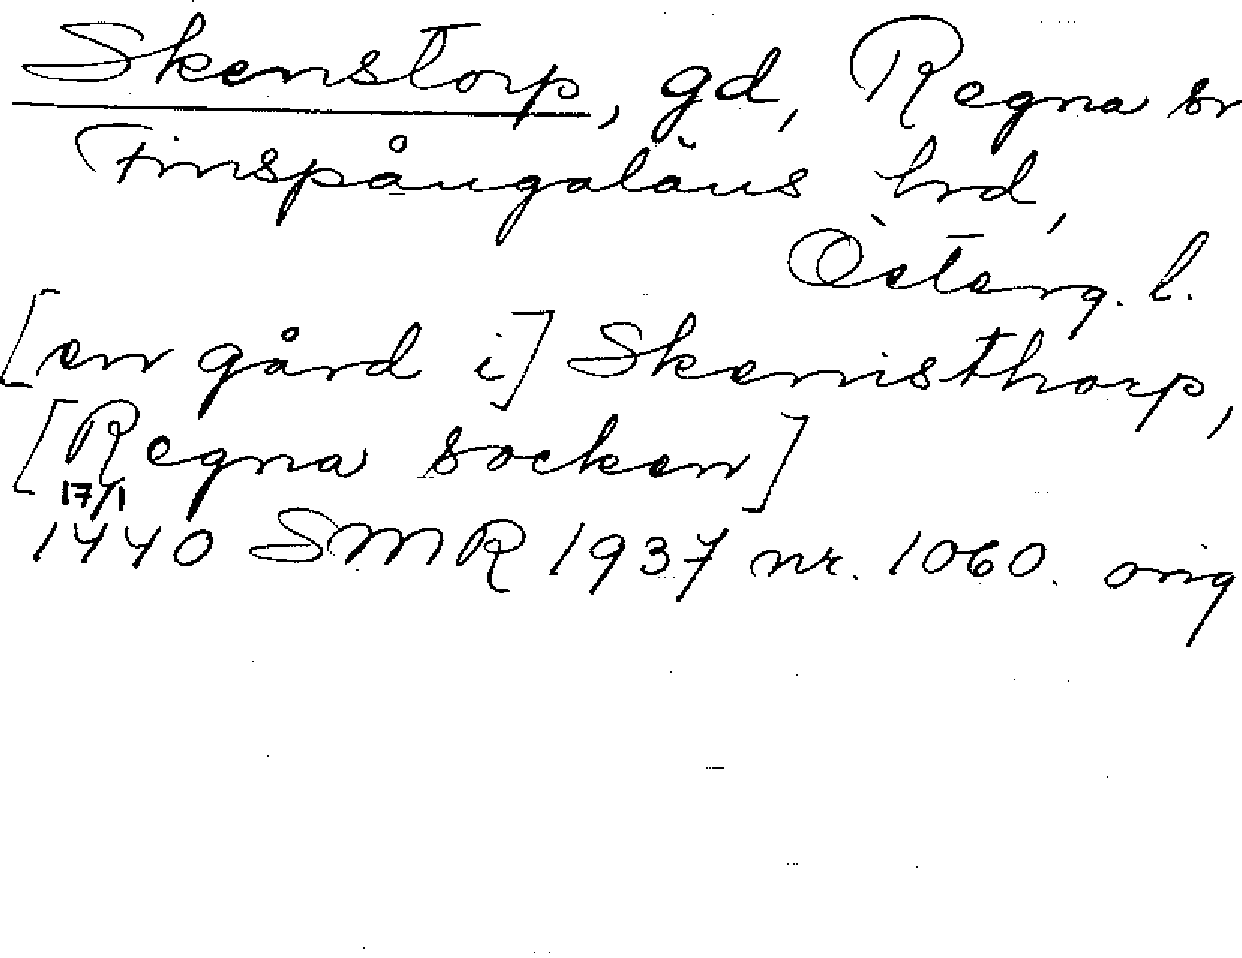 Skenstorp, gd, Regna sn
Finspångaläns hrd,
Österg. l.
[en gård i] Skenisthorp,
[Regna socken]
17/1
1440 SMR 1937 nr. 1060. orig